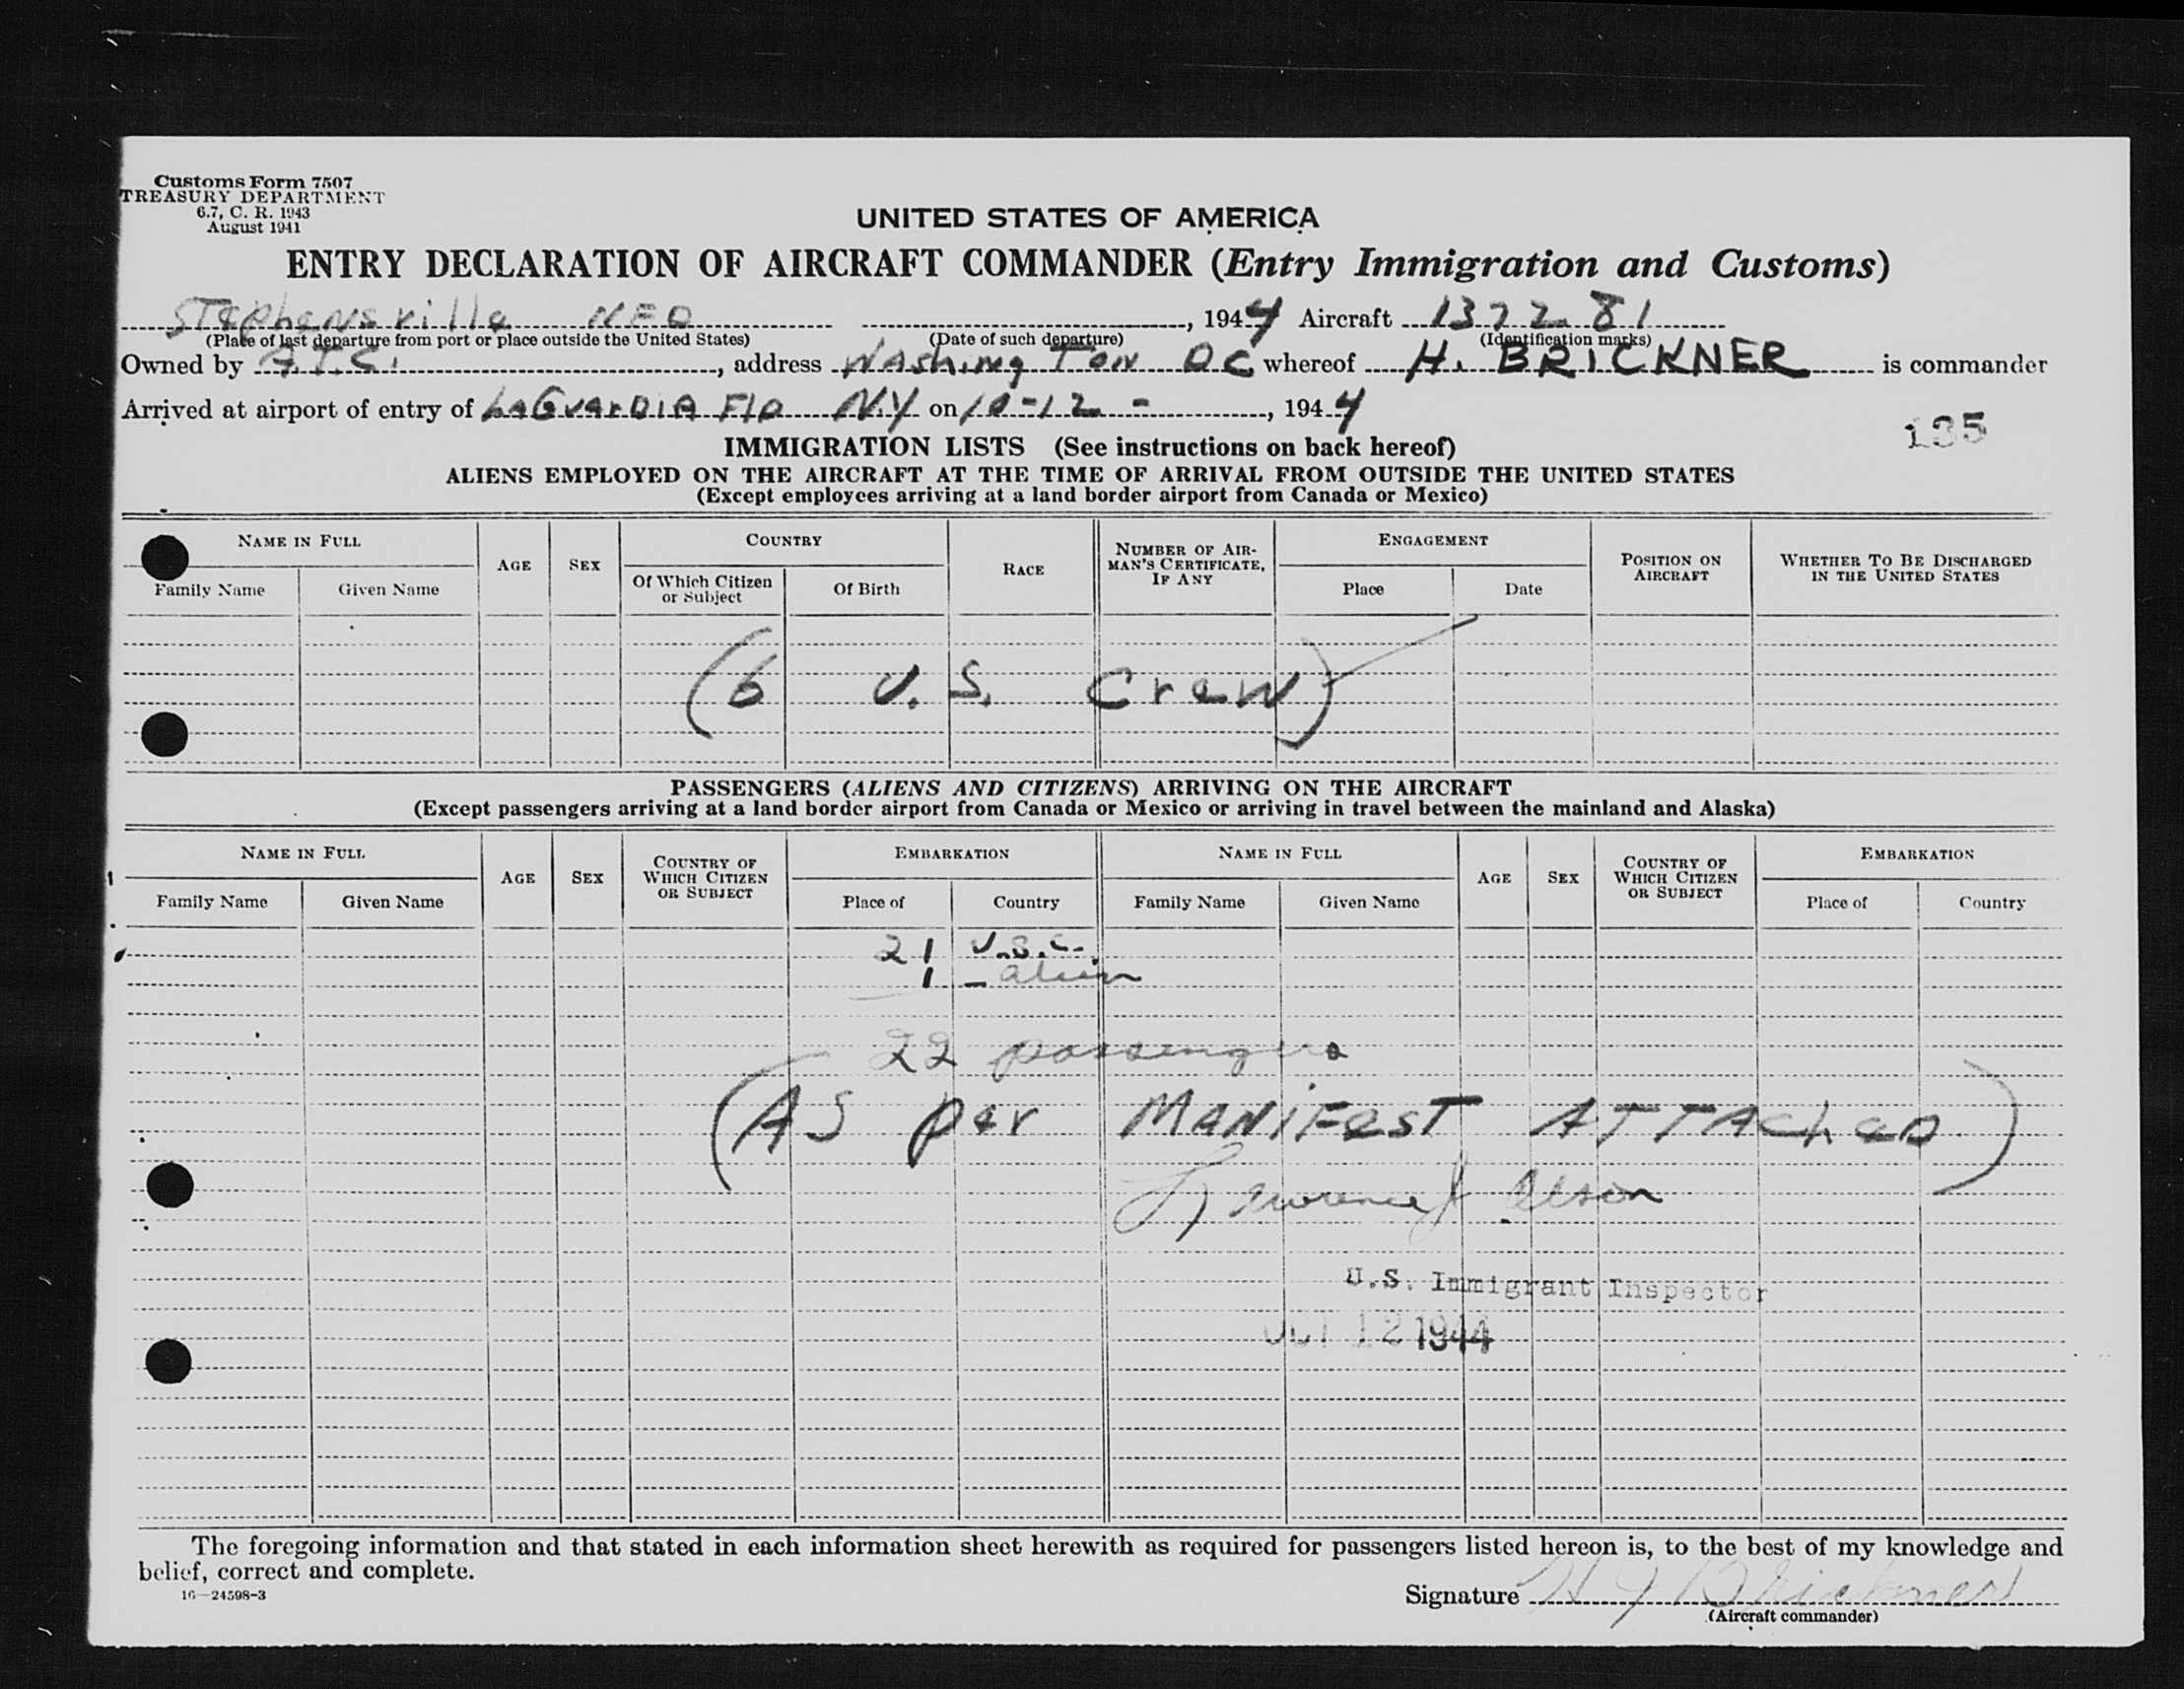 Customs Form 7507
TREASURY DEPARTMENT
6.7, C. R. 1943
August 1941
UNITED STATES OF AMERICA
ENTRY DECLARATION OF AIRCRAFT COMMANDER (Entry Immigration and Customs)
Stephensville NFD , 1944 Aircraft 137281
(Place of last departure from port or place outside the United States) (Date of such departure) (Identification marks)
Owned by A.T.C. , address Washington DC whereof H. BRICKNER is commander
Arrived at airport of entry of LaGuardia Fld N.Y on 10-12- , 1944
135
IMMIGRATION LISTS (See instructions on back hereof)
ALIENS EMPLOYED ON THE AIRCRAFT AT THE TIME OF ARRIVAL FROM OUTSIDE THE UNITED STATES
(Except employees arriving at a land border airport from Canada or Mexico)
NAME IN FULL AGE SEX COUNTRY RACE NUMBER OF AIRMAN'S CERTIFICATE, IF ANY ENGAGEMENT POSITION ON AIRCRAFT WHETHER TO BE DISCHARGED IN THE UNITED STATES
Family Name Given Name Of Which Citizen or Subject Of Birth Place Date
(6 U.S. Crew)
PASSENGERS (ALIENS AND CITIZENS) ARRIVING ON THE AIRCRAFT
(Except passengers arriving at a land border airport from Canada or Mexico or arriving in travel between the mainland and Alaska)
NAME IN FULL AGE SEX COUNTRY OF WHICH CITIZEN OR SUBJECT EMBARKATION NAME IN FULL AGE SEX COUNTRY OF WHICH CITIZEN OR SUBJECT EMBARKATION
Family Name Given Name Place of Country Family Name Given Name Place of Country
21 U.S.C.
1 - alien
22 passengers
(AS per MANIFEST ATTAChed)
Lawrence J Olson
U.S. Immigrant Inspector
OCT 12 1944
The foregoing information and that stated in each information sheet herewith as required for passengers listed hereon is, to the best of my knowledge and
belief, correct and complete.
16—24598-3
Signature H J Brickner
(Aircraft commander)